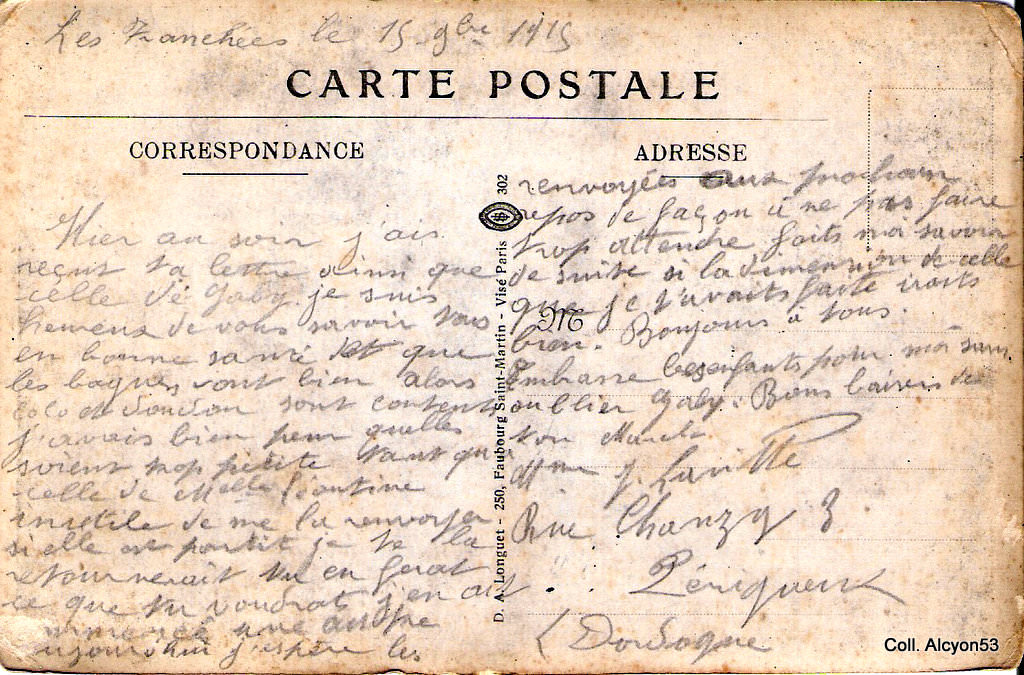 Les Tranchées le 15 9bre 1915
CARTE POSTALE
CORRESPONDANCE
Hier au soir j'ais
reçut ta lettre ainsi que
celle de Gaby. je suis
heureux de vous savoir tous
en bonne santé et que
les bagues vont bien alors
coco et doudou sont contents
j'avais bien peur quelles
soient trop petite tant qu'a
celle de Melle Léontine
inutile de me la renvoyer
si elle est partit je te la
retournerait tu en ferat
ce que tu voudrat j'en ait
commencé une autre
aujourd'hui j'espère les
D. A. Longuet - 250, Faubourg Saint-Martin - Visé Paris 302
ADRESSE
renvoyées aux prochain
repos de façon à ne pas faire
trop attendre faits moi savoir
de suite si la dimension de celle
que je t'avaits faite vaits
M
bien. Bonjours à tous.
Embrasse les enfants pour moi sans
oublier Gaby. Bons baisers de
ton
Mme J. Lavitte
Rue Chanzy 3
Périgueux
(Dordogne
Coll. Alcyon53